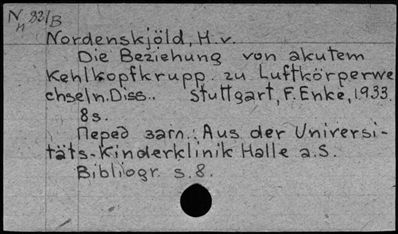 N 82/B
n
Nordenskjöld, H.v.
Die Beziehung von akutem
Kehlkopfkrupp zu Luftkörperwe
chseln. Diss.. Stuttgart, F. Enke, 1933.
8s.
Перед загл.: Aus der Universi-
täts-Kinderklinik Halle a.S.
Bibliogr. s. 8.